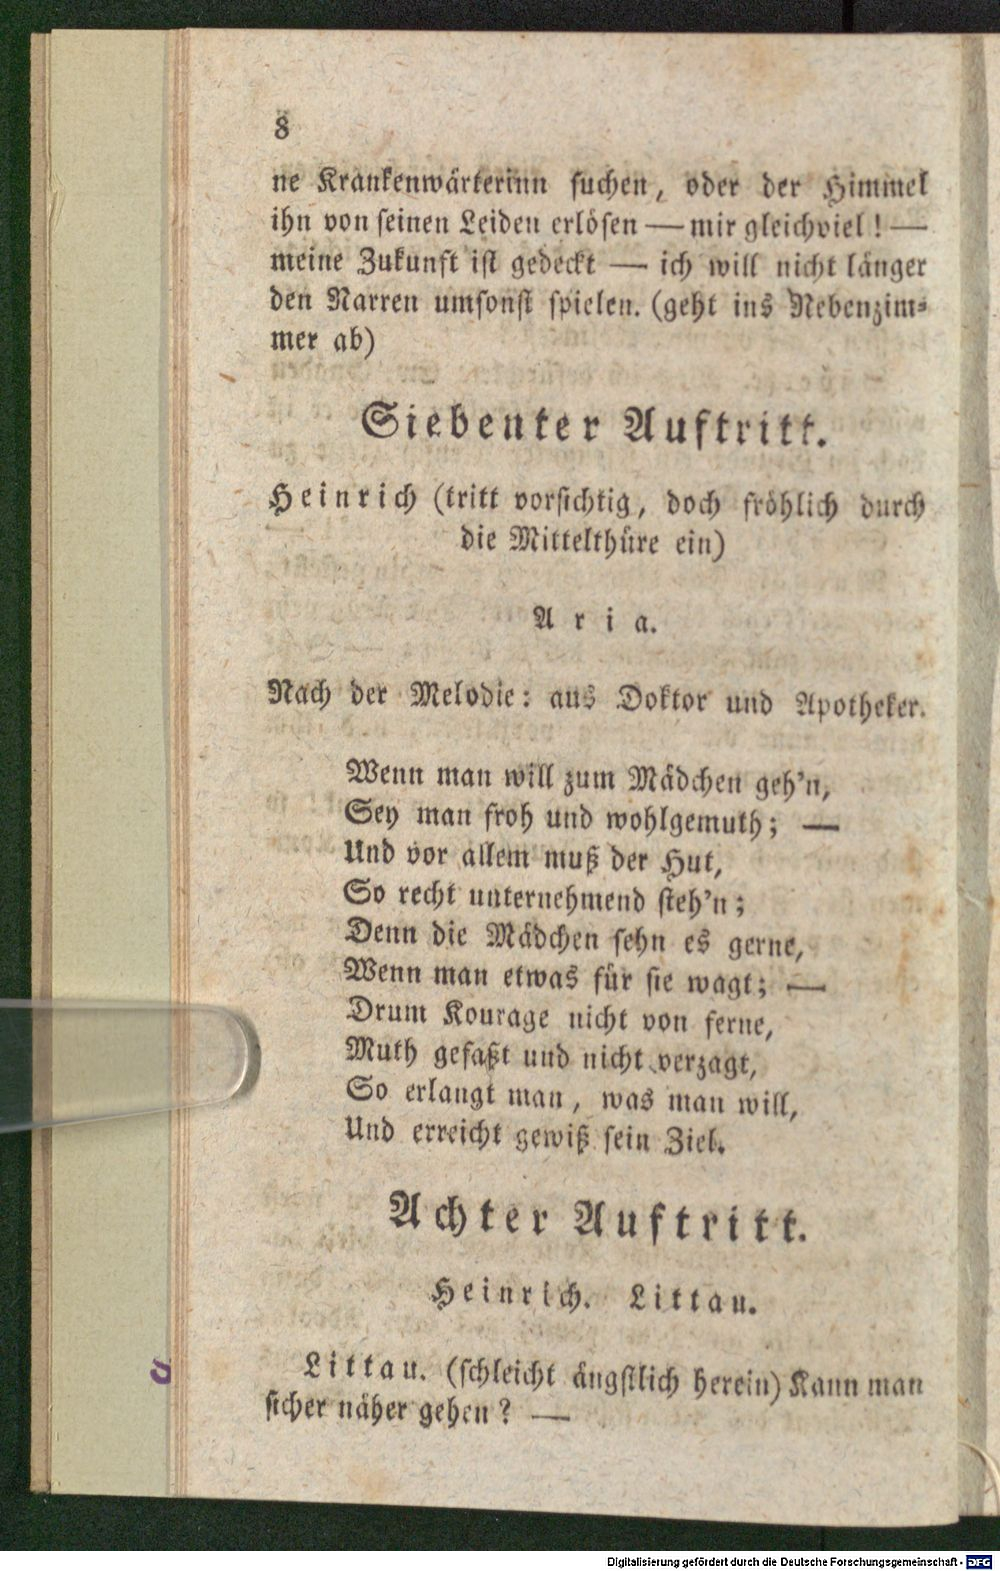 8
ne Krankenwärterinn suchen, oder der Himmel
ihn von seinen Leiden erlösen — mir gleichviel! —
meine Zukunft ist gedeckt — ich will nicht länger
den Narren umsonst spielen. (geht ins Nebenzim-
mer ab)
Siebenter Auftritt.
Heinrich (tritt vorsichtig, doch fröhlich durch
die Mittelthüre ein)
Aria.
Nach der Melodie: aus Doktor und Apotheker.
Wenn man will zum Mädchen geh'n,
Sey man froh und wohlgemuth; —
Und vor allem muß der Hut,
So recht unternehmend steh'n;
Denn die Mädchen sehn es gerne,
Wenn man etwas für sie wagt; —
Drum Kourage nicht von ferne,
Muth gefaßt und nicht verzagt,
So erlangt man, was man will,
Und erreicht gewiß sein Ziel.
Achter Auftritt.
Heinrich. Littau.
Littau. (schleicht ängstlich herein) Kann man
sicher näher gehen? —
Digitalisierung gefördert durch die Deutsche Forschungsgemeinschaft - DFG